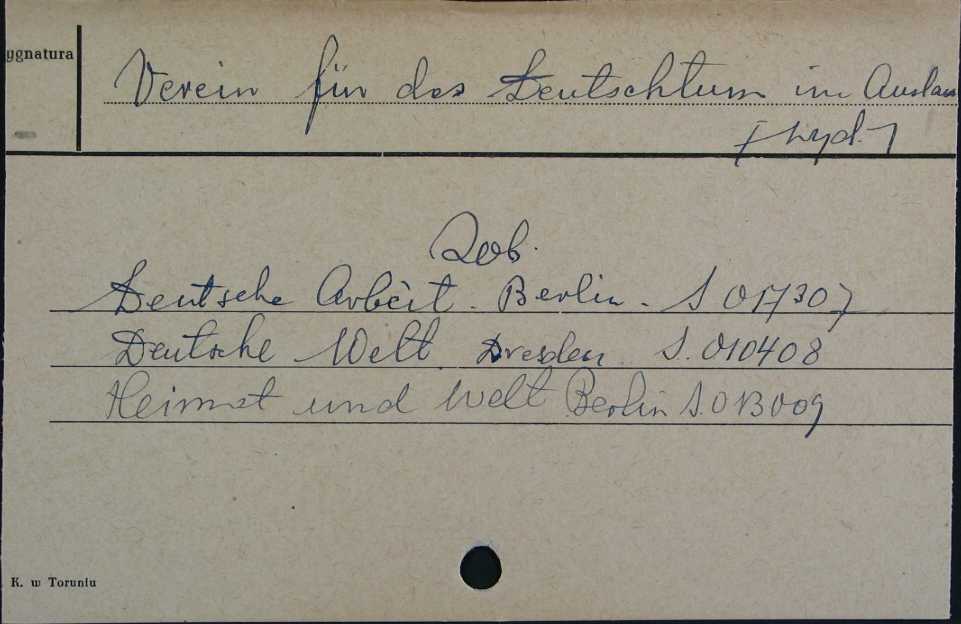 ygnatura
Verein für das Deutschtum im Auslan
[wyd.]
Zob.
Deutsche Arbeit. Berlin. S 017307
Deutsche Welt. Dresden. S. 010408
Heimat und Welt Berlin S. 013009
K. w Toruniu